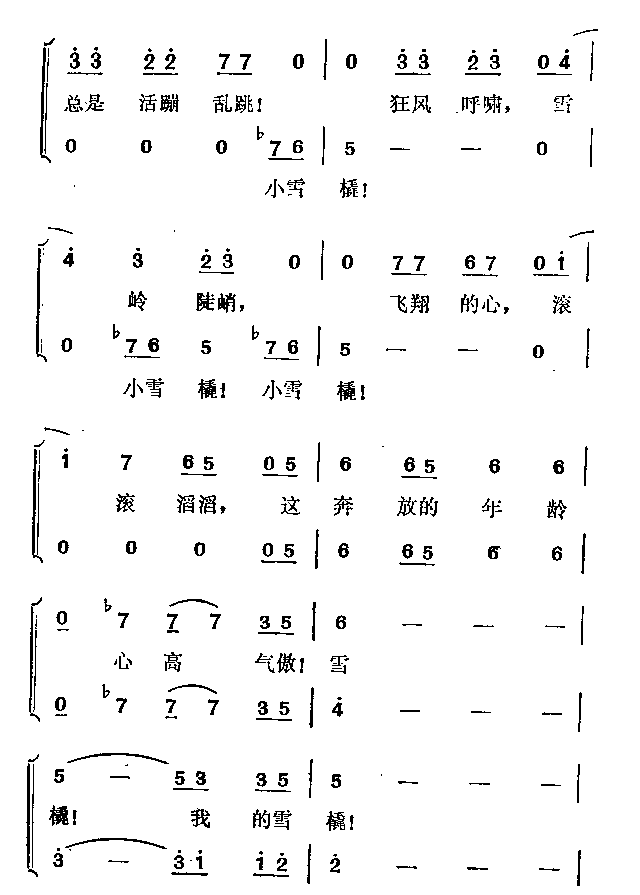 3̇3̇ 2̇2̇ 77 0 | 0 3̇3̇ 2̇3̇ 04̇ |
总是 活蹦 乱跳! 狂风 呼啸, 雪
0 0 0 ♭76 | 5 — — 0 |
小雪 橇!
4̇ 3̇ 2̇3̇ 0 | 0 77 67 01̇ |
岭 陡峭, 飞翔 的心, 滚
0 ♭76 5 ♭76 | 5 — — 0 |
小雪 橇! 小雪 橇!
1̇ 7 65 05 | 6 65 6 6 |
滚 滔滔, 这 奔 放的 年 龄
0 0 0 05 | 6 65 6 6 |
0 ♭7 7 7 35 | 6 — — — |
心 高 气傲! 雪
0 ♭7 7 7 35 | 4̇ — — — |
5 — 53 35 | 5 — — — |
橇! 我 的雪 橇!
3̇ — 3̇1̇ 1̇2̇ | 2̇ — — — |